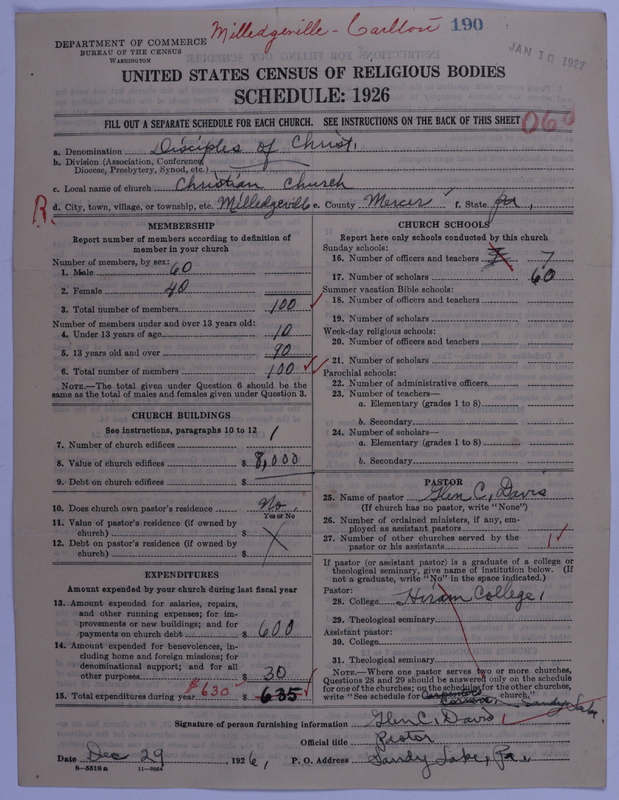 Milledgeville - Carlton 190
DEPARTMENT OF COMMERCE
BUREAU OF THE CENSUS
WASHINGTON
JAN 10 1927
UNITED STATES CENSUS OF RELIGIOUS BODIES
SCHEDULE: 1926
FILL OUT A SEPARATE SCHEDULE FOR EACH CHURCH. SEE INSTRUCTIONS ON THE BACK OF THIS SHEET
060
a. Denomination Disciples of Christ.
b. Division (Association, Conference, Diocese, Presbytery, Synod, etc.)
c. Local name of church Christian Church
R. d. City, town, village, or township, etc. Milledgeville e. County Mercer f. State Pa.,
MEMBERSHIP
Report number of members according to definition of
member in your church
Number of members, by sex:
1. Male 60
2. Female 40
3. Total number of members 100
Number of members under and over 13 years old:
4. Under 13 years of age 10
5. 13 years old and over 90
6. Total number of members 100
NOTE.—The total given under Question 6 should be the
same as the total of males and females given under Question 3.
CHURCH BUILDINGS
See instructions, paragraphs 10 to 12
7. Number of church edifices 1
8. Value of church edifices $ 8,000
9. Debt on church edifices $
10. Does church own pastor's residence No.
Yes or No
11. Value of pastor's residence (if owned by
church) $
12. Debt on pastor's residence (if owned by
church) $
EXPENDITURES
Amount expended by your church during last fiscal year
13. Amount expended for salaries, repairs,
and other running expenses; for im-
provements or new buildings; and for
payments on church debt $ 600
14. Amount expended for benevolences, in-
cluding home and foreign missions; for
denominational support; and for all
other purposes $ 30
15. Total expenditures during year $630 $ 635
CHURCH SCHOOLS
Report here only schools conducted by this church
Sunday schools:
16. Number of officers and teachers 7
17. Number of scholars 60
Summer vacation Bible schools:
18. Number of officers and teachers
19. Number of scholars
Week-day religious schools:
20. Number of officers and teachers
21. Number of scholars
Parochial schools:
22. Number of administrative officers
23. Number of teachers—
a. Elementary (grades 1 to 8)
b. Secondary
24. Number of scholars—
a. Elementary (grades 1 to 8)
b. Secondary
PASTOR
25. Name of pastor Glen C. Davis
(If church has no pastor, write "None")
26. Number of ordained ministers, if any, em-
ployed as assistant pastors
27. Number of other churches served by the
pastor or his assistants 1
If pastor (or assistant pastor) is a graduate of a college or
theological seminary, give name of institution below. (If
not a graduate, write "No" in the space indicated.)
Pastor:
28. College Hiram College,
29. Theological seminary
Assistant pastor:
30. College
31. Theological seminary
NOTE.—Where one pastor serves two or more churches,
Questions 28 and 29 should be answered only on the schedule
for one of the churches; on the schedules for the other churches,
write "See schedule for church."
Sandy Lake.
Signature of person furnishing information Glen C. Davis
Official title Pastor
Date Dec 29, 1926, P. O. Address Sandy Lake, Pa.,
8—5518 a 11—9054